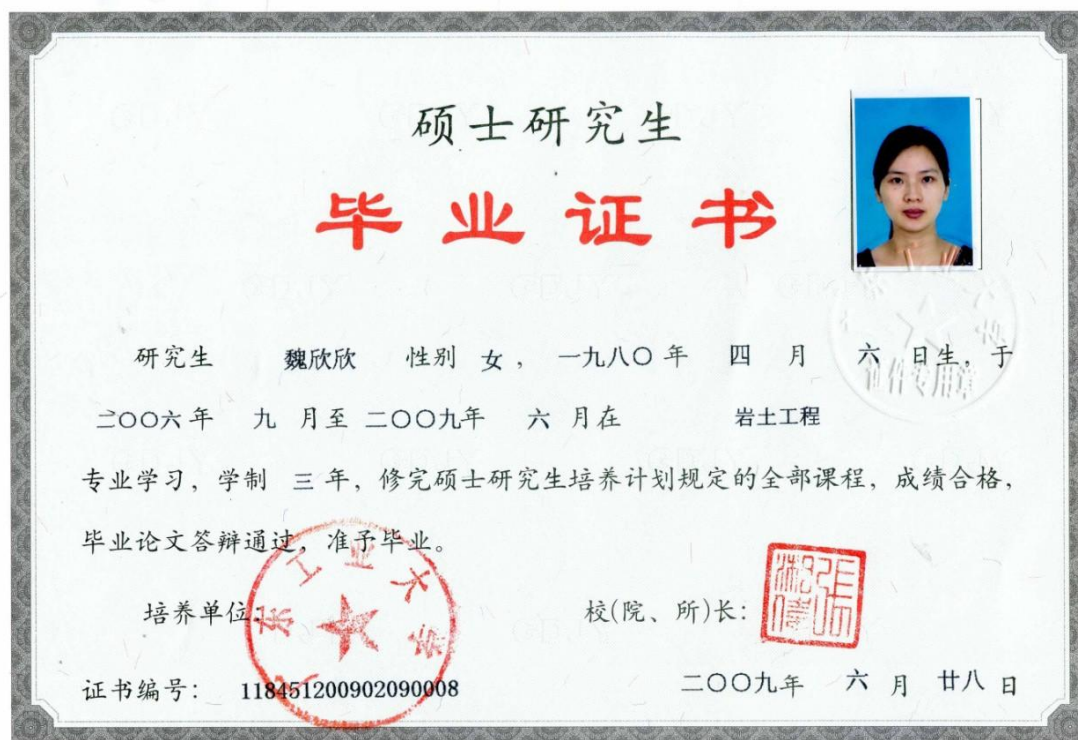 硕士研究生
毕业证书
研究生 魏欣欣 性别 女, 一九八〇年 四 月 六 日生, 于
二〇〇六年 九 月至 二〇〇九年 六 月在 岩土工程
专业学习, 学制 三 年, 修完硕士研究生培养计划规定的全部课程, 成绩合格,
毕业论文答辩通过, 准予毕业。
广东工业大学
培养单位: 校(院、所)长:
证书编号: 118451200902090008 二〇〇九年 六 月 廿八 日